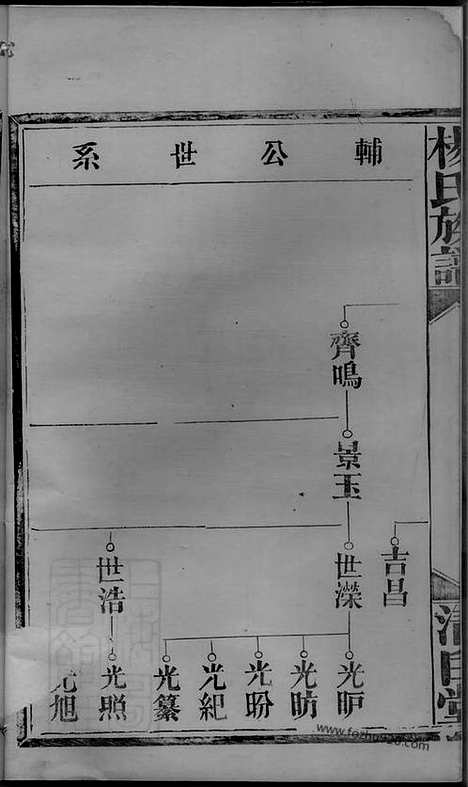 楊氏族譜
清白堂
輔公世系
齊鳴
景玉
吉昌
世濚
世浩
光昈
光昉
光昐
光紀
光纂
光照
光旭